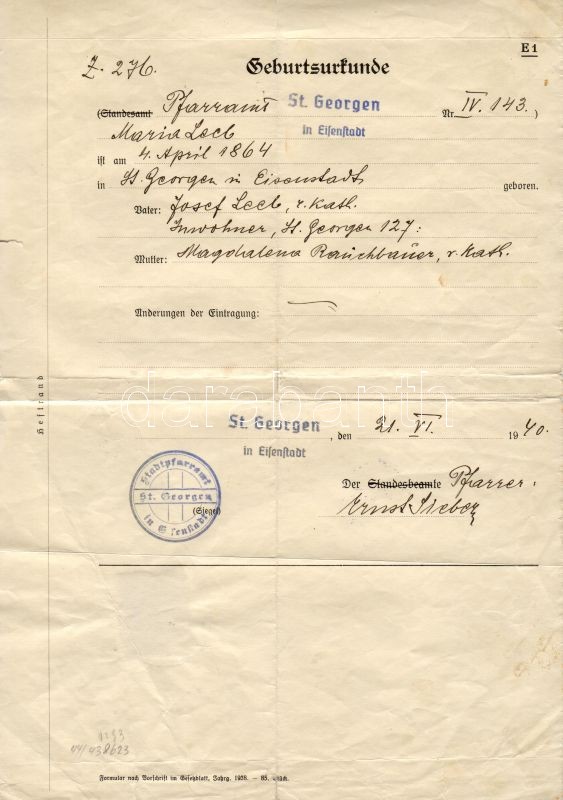 E 1
Z. 276.
Geburtsurkunde
(Standesamt Pfarramt St. Georgen Nr. IV. 143.)
in Eisenstadt
Maria Leeb
ist am 4. April 1864
in St. Georgen in Eisenstadt geboren.
Vater: Josef Leeb, r. kath.
Inwohner, St. Georgen 127:
Mutter: Magdalena Rauchbauer, r. kath.
Änderungen der Eintragung:
Heftrand
darabanth
St. Georgen, den 21. VI. 1940.
in Eisenstadt
Stadtpfarramt
St. Georgen
in Eisenstadt
(Siegel)
Der Standesbeamte Pfarrer:
Ernst Sieber
44/438623
Formular nach Vorschrift im Gesetzblatt, Jahrg. 1938. — 85. Stück.